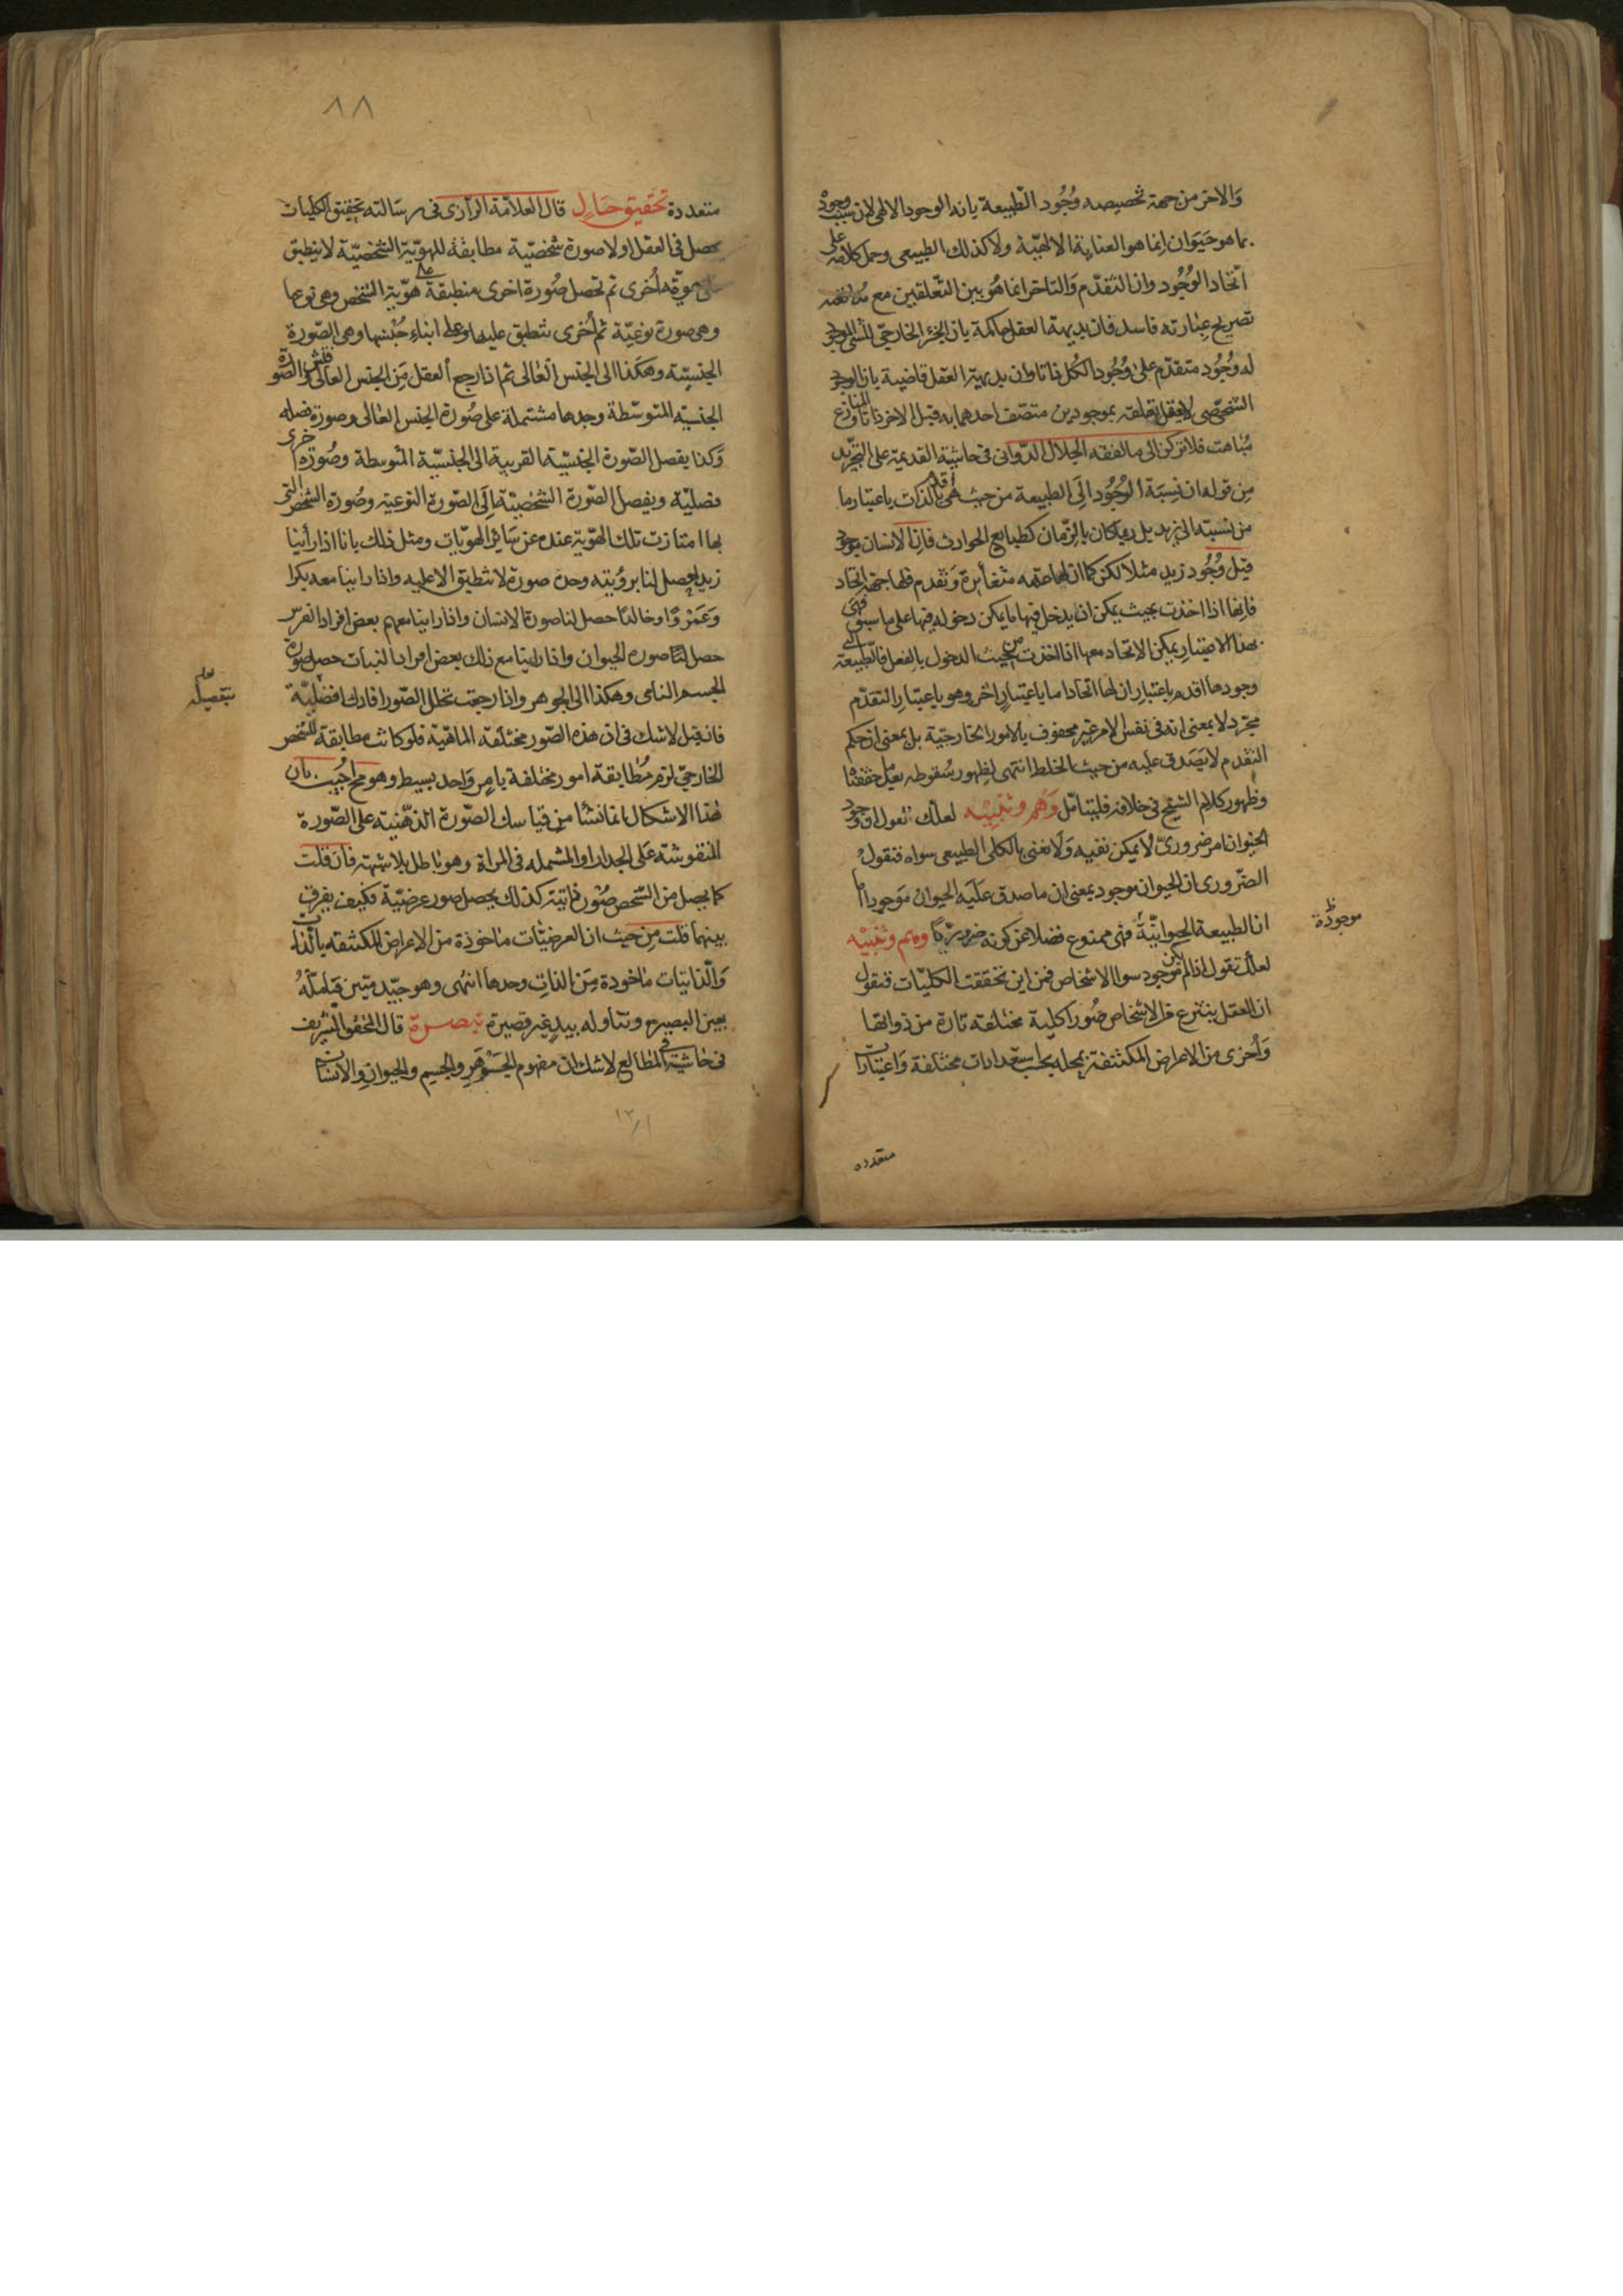 والاخر من جهة تخصيصه وجود الطبيعة بانه الوجود الالهى لان سبب وجوده
بما هو حيوان انما هو العناية الالهية ولا كذلك الطبيعى وحمل كلامه على
اتحاد الوجود وان التقدم والتاخر انما هو بين التعلقين مع
تصريح عبارته فاسد فان بديهة العقل حاكمة بان الجزء الخارجى للشئ الموجود
له وجود متقدم على وجود الكل ذاتا وان بديهة العقل قاضية بان الوجود
الشخصى لا يعقل تعلقه بموجودين متصف احدهما به قبل الاخر ذاتا والمنازع
مباهت فلا تركن الى ما لفقه الجلال الدوانى فى حاشية القديمة على التجريد
من قوله ان نسبة الوجود الى الطبيعة من حيث هى اقدم بالذات باعتبار ما
من نسبته الى زيد بل ربما كان بالزمان كطبايع الحوادث فان الانسان موجود
قبل وجود زيد مثلا لكن كما ان لها معه مغايرة وتقدم فلها جهة اتحاد
فانها اذا اخذت بحيث يمكن ان يدخل فيها ما يمكن دخوله فيها على ما سبق فهى
بهذا الاعتبار يمكن الاتحاد معها اذا اخذت من حيث الدخول بالفعل فالطبيعة التى
وجودها اقدم باعتبار ان لها اتحادا ما باعتبار اخر وهو باعتبار التقدم
مجرد لا بمعنى انه فى نفس الامر غير محفوف بالامور الخارجية بل بمعنى ان حكم
التقدم لا يصدق عليه من حيث الخلط انتهى لظهور سقوطه بعد ما حققنا
وظهور كلام الشيخ فى خلافه فليتامل وهم وتنبيه لعلك تقول ان وجود
الحيوان امر ضرورى لا يمكن نفيه ولا نعنى بالكلى الطبيعى سواه فنقول
الضرورى ان الحيوان موجود بمعنى ان ما صدق عليه الحيوان موجود اما
ان الطبيعة الحيوانية فهى ممنوع فضلا عن كونه ضروريا وهم وتنبيه
موجودة ظ
لعلك تقول اذا لم يكن موجود سوا الاشخاص فمن اين تحققت الكليات فنقول
ان العقل ينتزع من الاشخاص صورا كلية مختلفة تارة من ذواتها
واخرى من الاعراض المكتنفة بمحله بحسب استعدادات مختلفة واعتبارات
متعدده
٨٨
متعددة تحقيق حال قال العلامة الرازى فى رسالته تحقيق الكليات
يحصل فى العقل اولا صورة شخصية مطابقة للهوية الشخصية لا ينطبق
على هوية اخرى ثم تحصل صورة اخرى منطبقة على هوية الشخص وهى نوعها
وهى صورة نوعية ثم اخرى تنطبق عليها وعلى ابناء جنسها وهى الصورة
الجنسية وهكذا الى الجنس العالى ثم اذا رجع العقل من الجنس العالى والصورة
الجنسية المتوسطة وجدها مشتملة على صورة الجنس العالى وصورة فصله
وكذا يفصل الصورة الجنسية القريبة الى الجنسية المتوسطة وصورة اخرى
فصلية ويفصل الصورة الشخصية الى الصورة النوعية وصورة الشخص التى
بها امتازت تلك الهوية عنده عن سائر الهويات ومثل ذلك بانا اذا رأينا
زيدا يحصل لنا برؤيته وحده صورة لا تنطبق الا عليه واذا راينا معه بكرا
وعمروا وخالدا حصل لنا صورة الانسان واذا راينا معهم بعض افراد الفرس
حصل لنا صورة الحيوان واذا راينا مع ذلك بعض افراد النبات حصل صورة
الجسم النامى وهكذا الى الجوهر واذا رجعت تحلل الصور افادك
بتفصيله
فان قيل لا شك فى ان هذه الصور مختلفة الماهية فلو كانت مطابقة للشخص
الخارجى لزم مطابقة امور مختلفة بامر واحد بسيط وهو مح اجيب بان
هذا الاشكال انما نشأ من قياسك الصورة الذهنية على الصورة
المنقوشة على الجدار او فى المراة وهو باطل بلا شبهة فان قلت
كما يحصل من الشخص صور ذاتية كذلك يحصل صور عرضية فكيف يفرق
بينهما قلت من حيث ان العرضيات ماخوذة من الاعراض المكتنفه بالذات
والذاتيات ماخودة من الذات وحدها انتهى وهو جيد متين فتأمله
بعين البصيرة وتناوله بيد غير قصيرة تبصرة قال المحقق الشريف
فى حاشية المطالع لا شك ان مفهوم الجوهر والجسم والحيوان والانسان